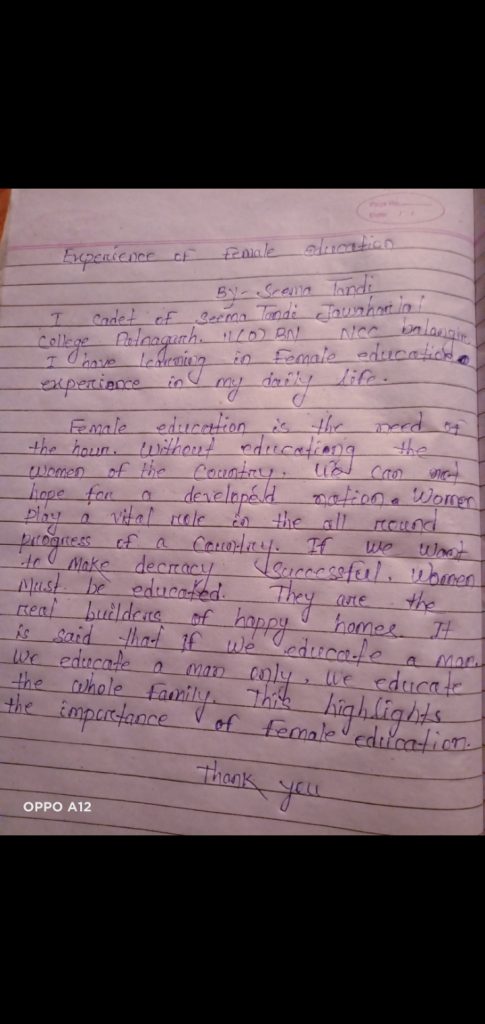 Experience of Female education
By- Seema Tandi
I cadet of Seema Tandi Jawaharlal
College Patnagarh. 11(O) BN NCC balangir
I have learning in Female education
experience in my daily life.
Female education is the need of
the hour. Without educationg the
women of the Country. We can not
hope for a developed nation. Women
play a vital role in the all round
progress of a Country. If we want
to make decracy successful. Women
must be educated. They are the
real builders of happy homes. It
is said that if we educate a man,
we educate a man only, we educate
the whole Family. This highlights
the importance of Female education.
Thank you
OPPO A12